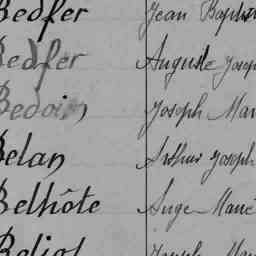 Bedfer Jean Baptis
Bedfer Auguste Josep
Bedoin Joseph Mar
Belan Arthur Joseph
Belhôte Ange Marie
Beliot Joseph Mar